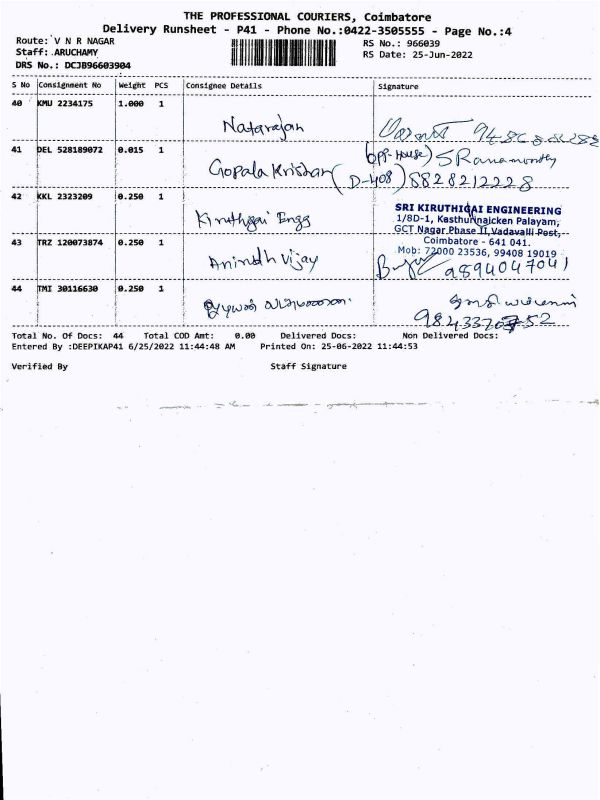 THE PROFESSIONAL COURIERS, Coimbatore
Delivery Runsheet - P41 - Phone No.:0422-3505555 - Page No.:4
Route: V N R NAGAR
RS No.: 966039
Staff: ARUCHAMY
RS Date: 25-Jun-2022
DRS No.: DCJB96603904
S No Consignment No Weight PCS Consignee Details Signature
40 KMU 2234175 1.000 1 Natarajan
41 DEL 528189072 0.015 1 Gopala Krishnan (opp-House) S Ramamoorthy
D-408) 8828212228
42 KKL 2323209 0.250 1 Kiruthigai Engg
SRI KIRUTHIGAI ENGINEERING
1/8D-1, Kasthurinaicken Palayam,
GCT Nagar Phase II, Vadavalli Post,
Coimbatore - 641 041.
Mob: 72000 23536, 99408 19019
43 TRZ 120073874 0.250 1 Anirudh Vijay 9894047041
44 TMI 30116630 0.250 1
Total No. Of Docs: 44 Total COD Amt: 0.00 Delivered Docs: Non Delivered Docs:
Entered By :DEEPIKAP41 6/25/2022 11:44:48 AM Printed On: 25-06-2022 11:44:53
Verified By Staff Signature